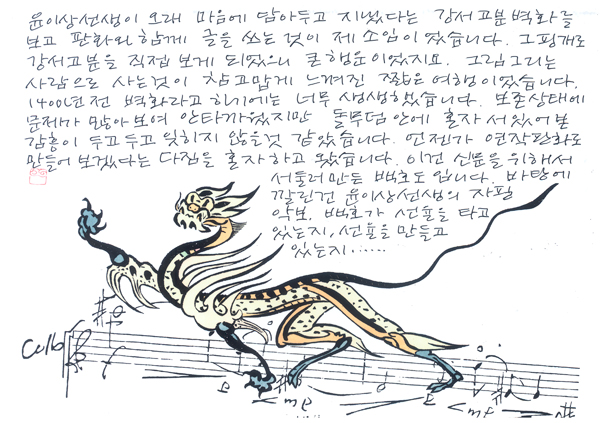 윤이상선생이 오래 마음에 담아두고 지냈다는 강서고분벽화를
보고 판화와 함께 글을 쓰는것이 제 소임이었습니다. 그핑계로
강서고분을 직접 보게 되었으니 큰행운이었지요. 그림그리는
사람으로 사는것이 참고맙게 느껴진 짧은 여행이었습니다.
1400년전 벽화라고 하기에는 너무 생생했습니다. 보존상태에
문제가 많아보여 안타까웠지만 돌무덤안에 혼자 서있어본
감흥이 두고두고 잊히지 않을것 같았습니다. 언젠가 연작판화로
만들어 보겠다는 다짐을 혼자하고 왔습니다. 이건 신문을 위해서
서둘러만든 백호도 입니다. 바탕에
깔린건 윤이상선생의 자필
악보. 백호가 선율을 타고
있는지, 선율을 만들고
있는지......
Cello
mp
mf